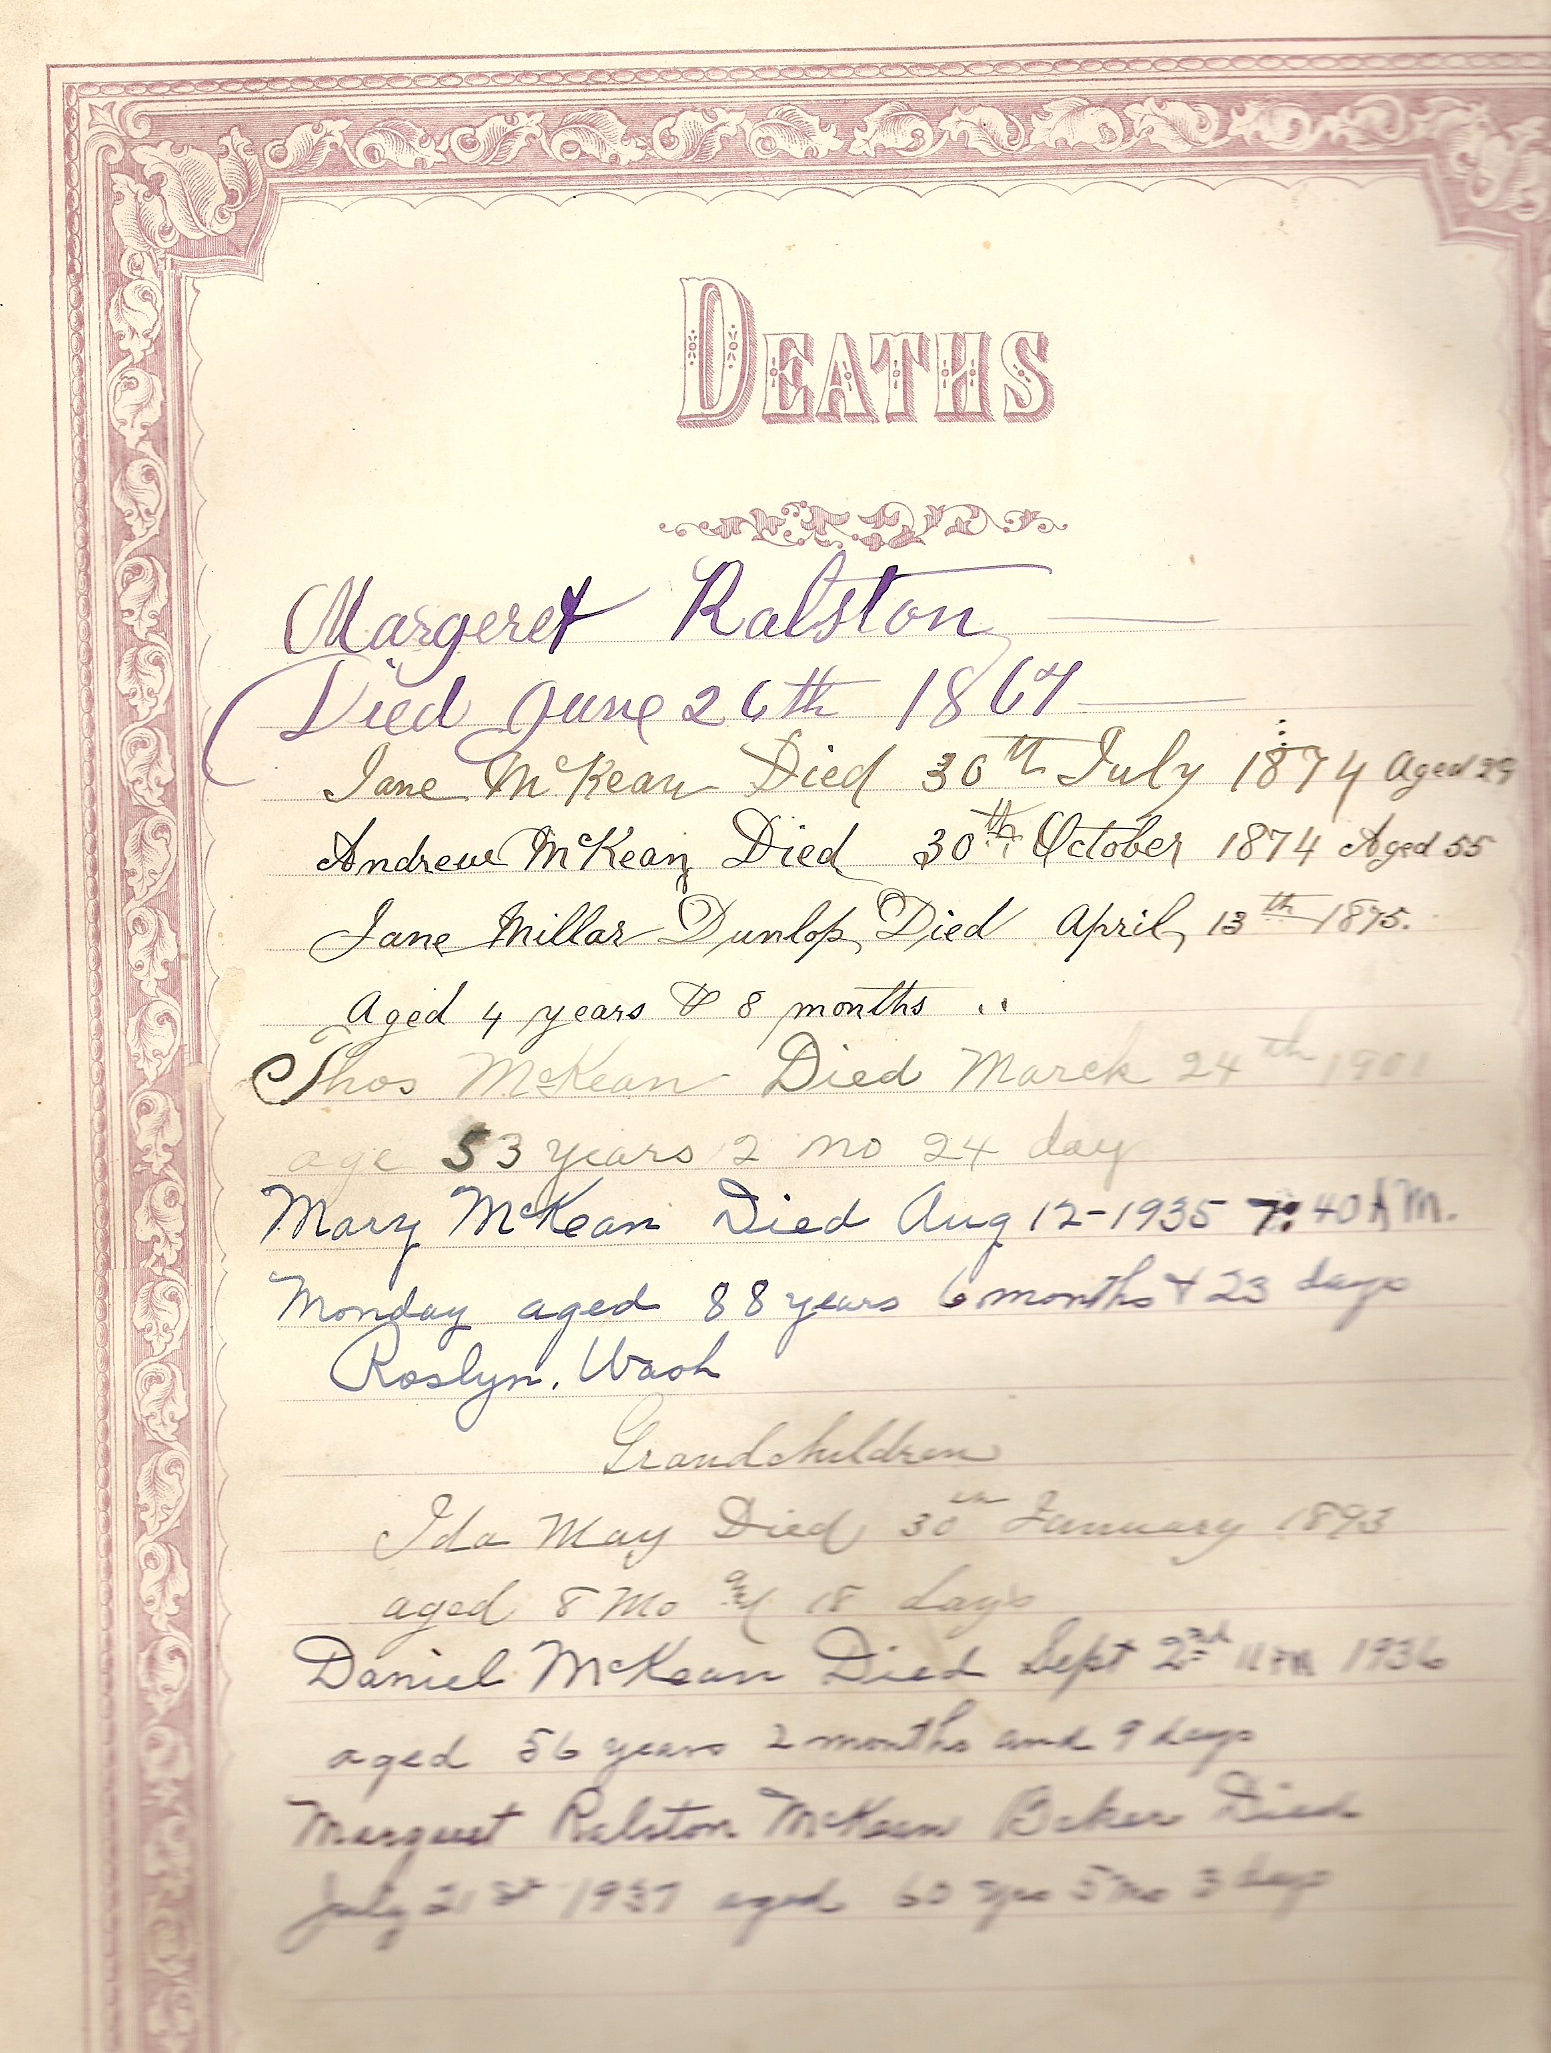 DEATHS
Margeret Ralston
Died June 26th 1867
Jane McKean Died 30th July 1874 Aged 29
Andrew McKean Died 30th October 1874 Aged 55
Jane Millar Dunlop, Died April, 13th 1875.
Aged 4 years & 8 months ..
Thos McKean Died March 24th 1901
age 53 years 2 mo 24 day
Mary McKean Died Aug 12-1935 7:40 AM.
Monday aged 88 years 6 months & 23 days
Roslyn, Wash
Grandchildren
Ida May Died 30th January 1893
aged 8 Mo and 18 days
Daniel McKean Died Sept 2nd 11 PM 1936
aged 56 years 2 months and 9 days
Margaret Ralston McKean Baker Died
July 21st 1937 aged 60 yrs 5 mo 3 days